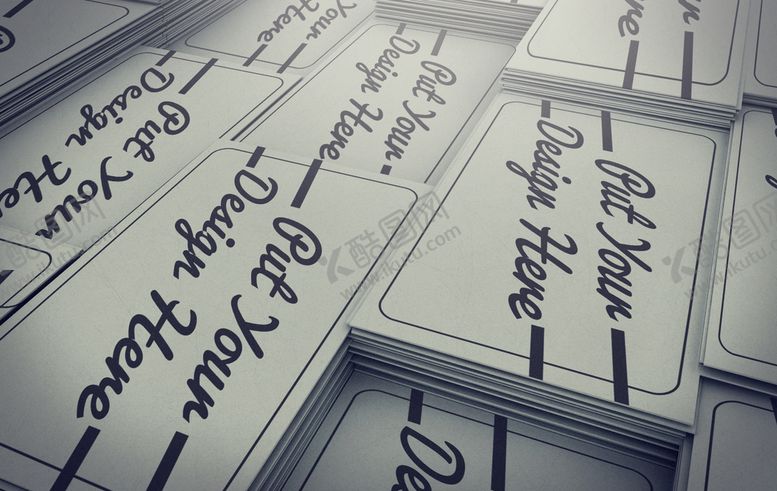 Put Your
Design Here
Put Your
Design Here
Put Your
Design Here
Put Your
Design Here
Your
Here
Put Your
Design Here
De
酷图网
www.ikutu.com
酷图网
www.ikutu.com
酷图网
www.ikutu.com